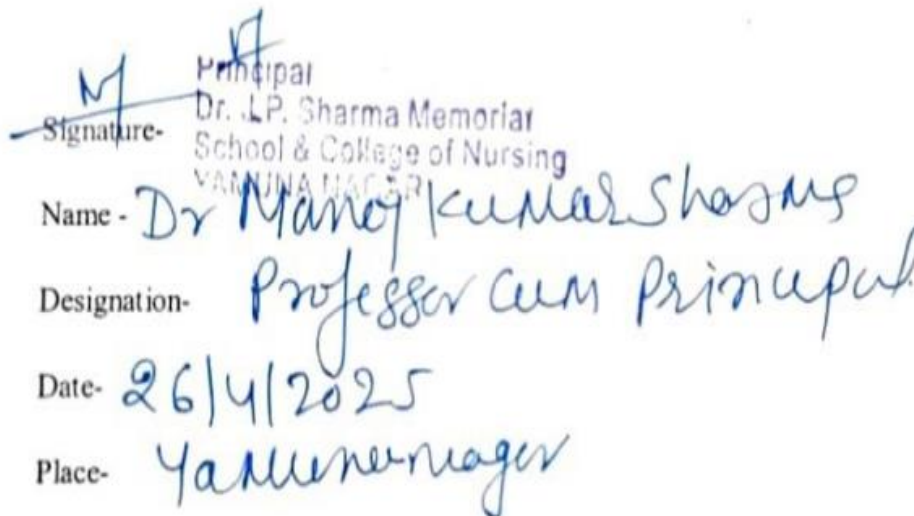 Principal
Dr. J.P. Sharma Memorial
Signature-
School & College of Nursing
YAMUNA NAGAR
Name - Dr Manoj Kumar Sharma
Designation- Professor cum Principal
Date- 26/4/2025
Place- Yamunanagar